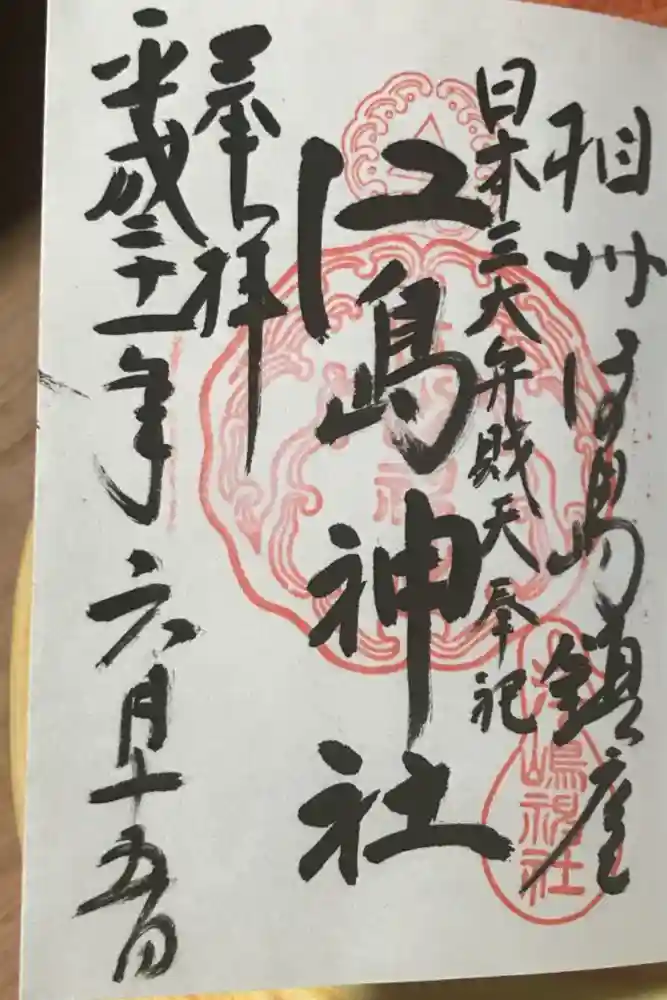 相州江島鎮座
日本三大弁財天奉祀
江島神社
奉拝
平成二十一年六月十五日
嶋祝社